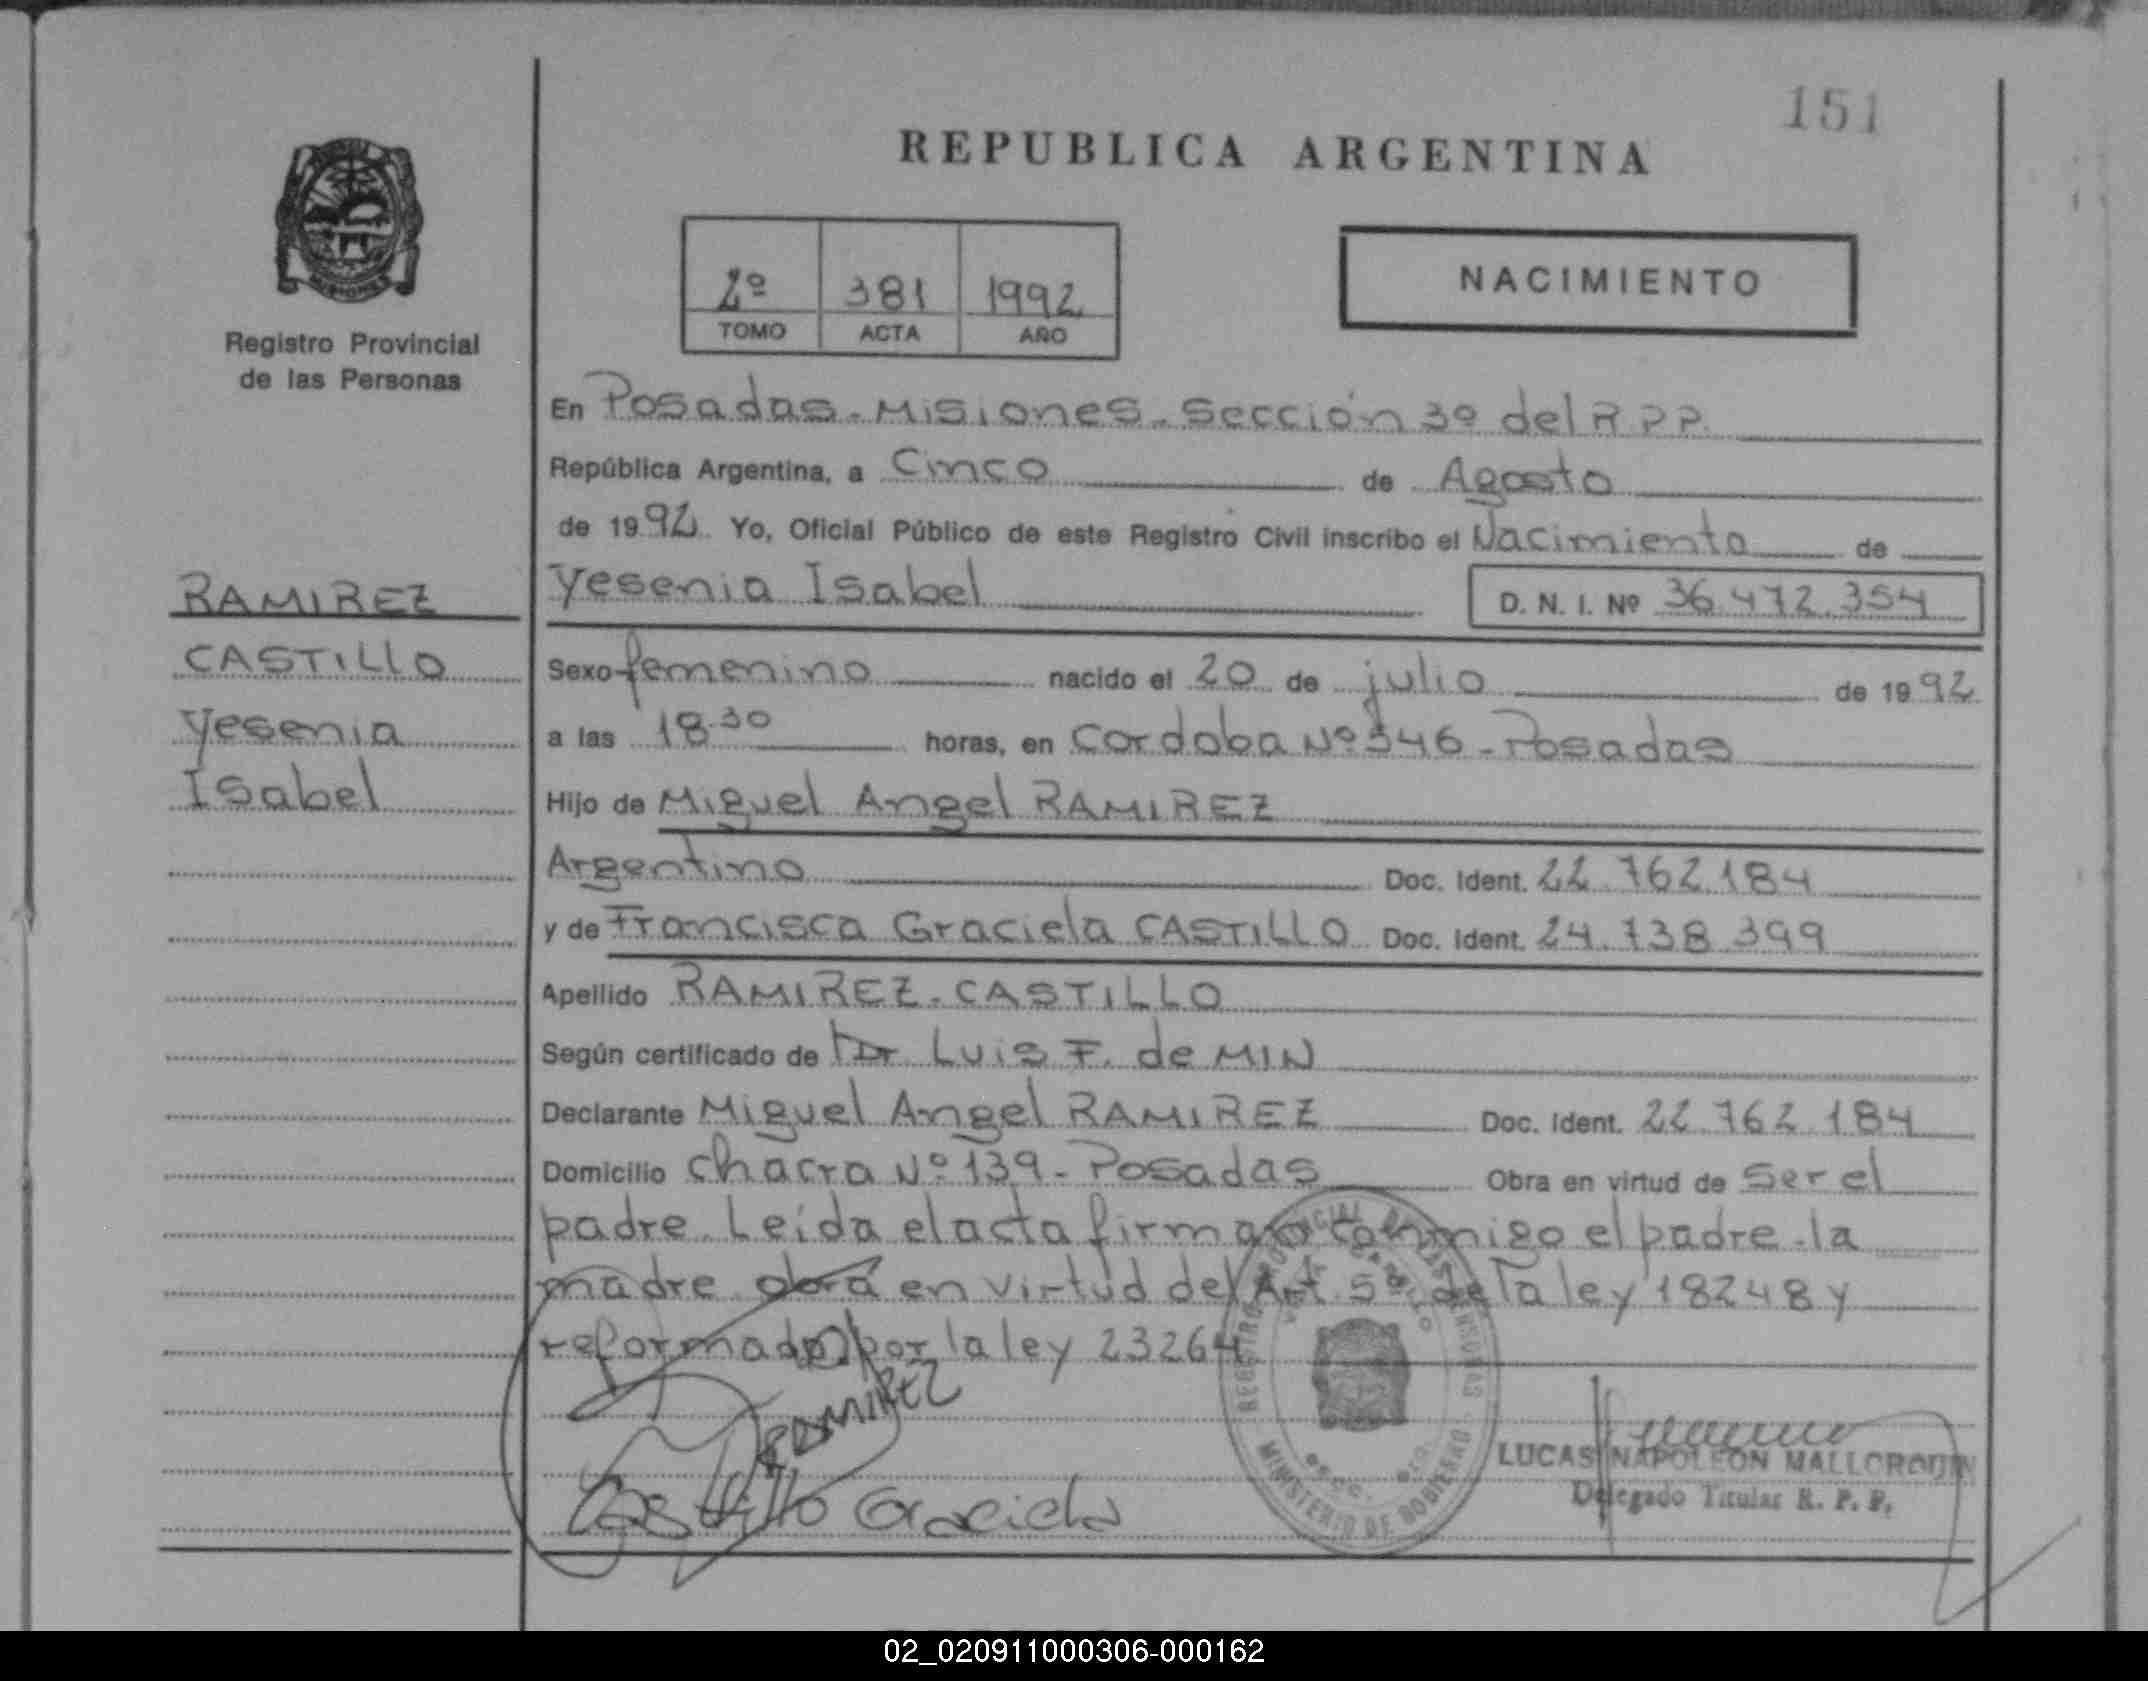 151
REPUBLICA ARGENTINA
2º 381 1992
TOMO ACTA AÑO
NACIMIENTO
MISIONES
Registro Provincial
de las Personas
RAMIREZ
CASTILLO
Yesenia
Isabel
En Posadas - Misiones - Sección 3º del R P P.
República Argentina, a Cinco de Agosto
de 1992 Yo, Oficial Público de este Registro Civil inscribo el Nacimiento de
Yesenia Isabel D. N. I. Nº 36.472.354
Sexo femenino nacido el 20 de julio de 1992
a las 18.30 horas, en Cordoba Nº 546 - Posadas
Hijo de Miguel Angel RAMIREZ
Argentino Doc. Ident. 22.762.184
y de Francisca Graciela CASTILLO Doc. Ident. 24.738.399
Apellido RAMIREZ - CASTILLO
Según certificado de Dr Luis F. de MIN
Declarante Miguel Angel RAMIREZ Doc. Ident. 22.762.184
Domicilio Chacra Nº 139 - Posadas Obra en virtud de Ser el
padre. Leída el acta firman conmigo el padre - la
madre obra en virtud del Art 5º de la ley 18248 y
reformado por la ley 23264
RAMIREZ
Castillo Graciela
REGISTRO PROVINCIAL DE LAS PERSONAS
MINISTERIO DE GOBIERNO
LUCAS NAPOLEON MALLORQUIN
Delegado Titular R. P. P.
02_020911000306-000162